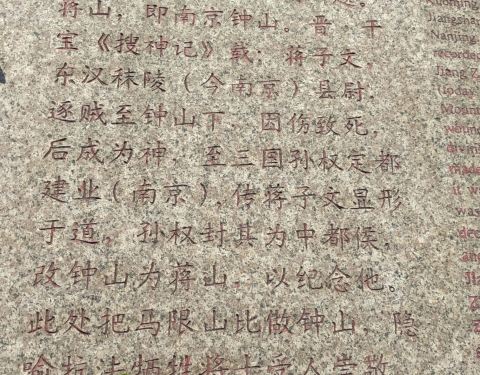 蒋山，即南京钟山。晋 干
宝《搜神记》载：蒋子文，
东汉秣陵（今南京）县尉，
逐贼至钟山下，因伤致死，
后成为神。至三国孙权定都
建业（南京），传蒋子文显形
于道，孙权封其为中都侯，
改钟山为蒋山，以纪念他。
此处把马限山比做钟山，隐
喻抗法牺牲将士受人崇敬
Jiangsha
Nanjing
recorded
Jiang Z